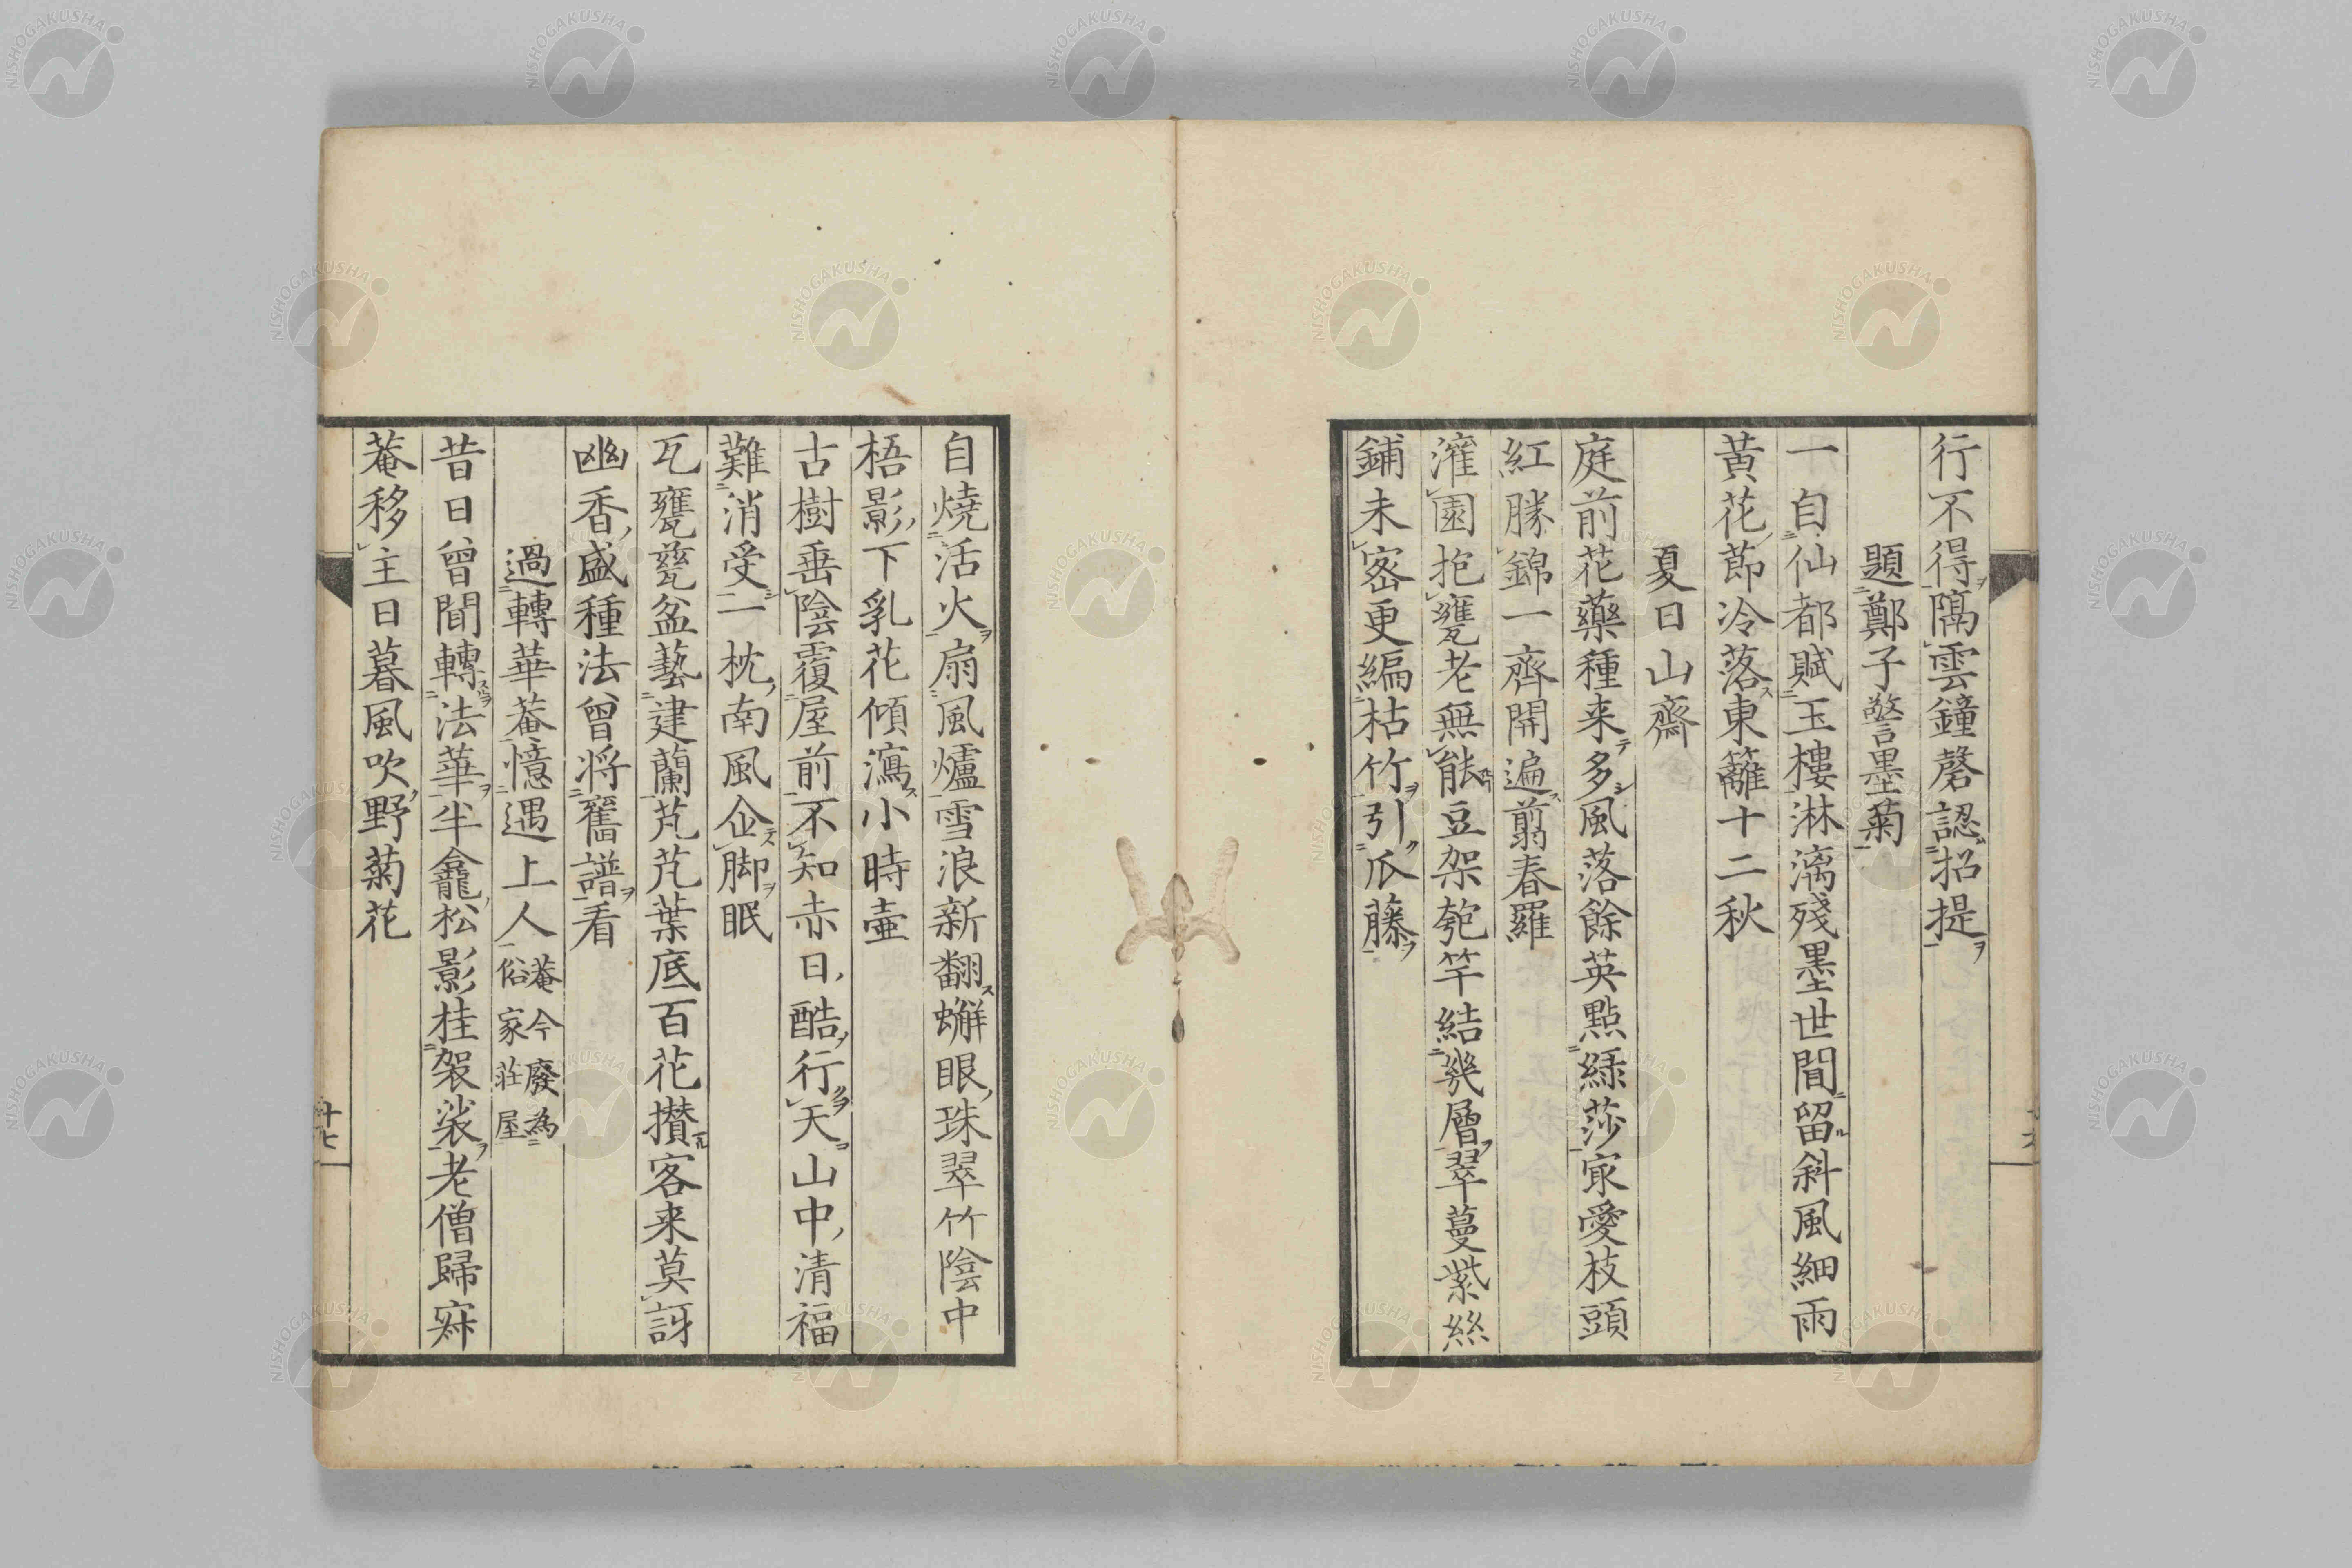 行不得隔雲鐘磬認招提
題鄭子警墨菊
一自仙都賦玉樓淋漓殘墨世間留斜風細雨
黃花節冷落東籬十二秋
夏日山齋
庭前花藥種来多風落餘英點綠莎最愛枝頭
紅勝錦一齊開遍翦春羅
灌園抱甕老無能豆架匏竿結幾層翠蔓紫絲
鋪未密更編枯竹引瓜藤
自燒活火扇風爐雪浪新翻蠏眼珠翠竹陰中
梧影下乳花傾瀉小時壷
古樹垂陰覆屋前不知赤日酷行天山中清福
難消受一枕南風企脚眠
瓦甕甆盆藝建蘭芃芃葉底百花攅客来莫訝
幽香盛種法曾将舊譜看
過轉華菴憶遇上人菴今廢為俗家荘屋
昔日曾聞轉法華半龕松影挂袈裟老僧歸寂
菴移主日暮風吹野菊花
十七
NISHOGAKUSHA